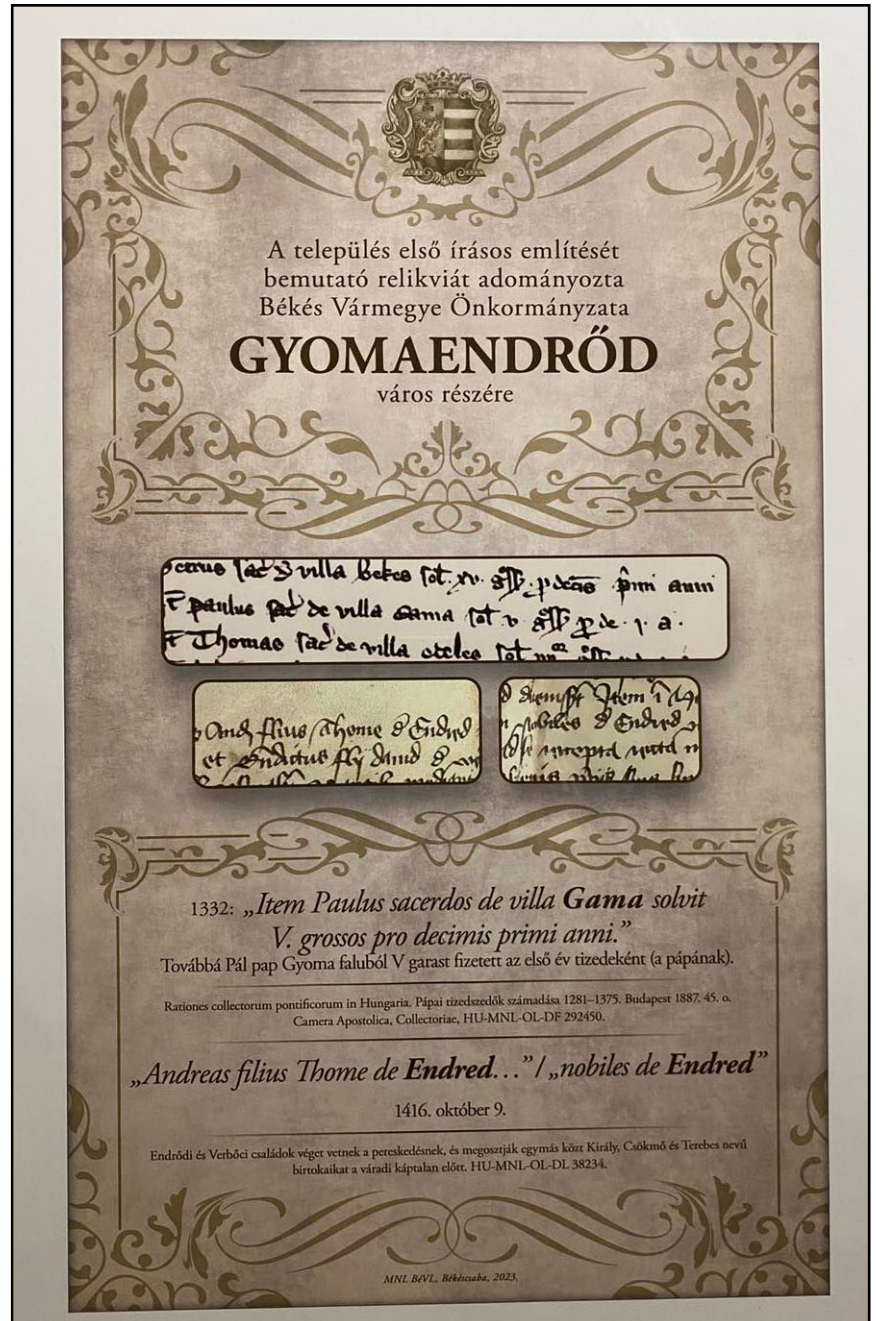 A település első írásos említését
bemutató relikviát adományozta
Békés Vármegye Önkormányzata
GYOMAENDRŐD
város részére
villa bekes solt. xv. primi anni
paulus de villa Gama solt v
Thomas de villa
filius Thome d Endred
et
Item
nobiles d Endred
1332: „Item Paulus sacerdos de villa Gama solvit
V. grossos pro decimis primi anni.”
Továbbá Pál pap Gyoma faluból V garast fizetett az első év tizedeként (a pápának).
Rationes collectorum pontificorum in Hungaria. Pápai tizedszedők számadása 1281–1375. Budapest 1887. 45. o.
Camera Apostolica, Collectoriae, HU-MNL-OL-DF 292450.
„Andreas filius Thome de Endred...” / „nobiles de Endred”
1416. október 9.
Endrődi és Verbőci családok véget vetnek a pereskedésnek, és megosztják egymás közt Király, Csökmő és Terebes nevű
birtokaikat a váradi káptalan előtt. HU-MNL-OL-DL 38234.
MNL BéVL, Békéscsaba, 2023.